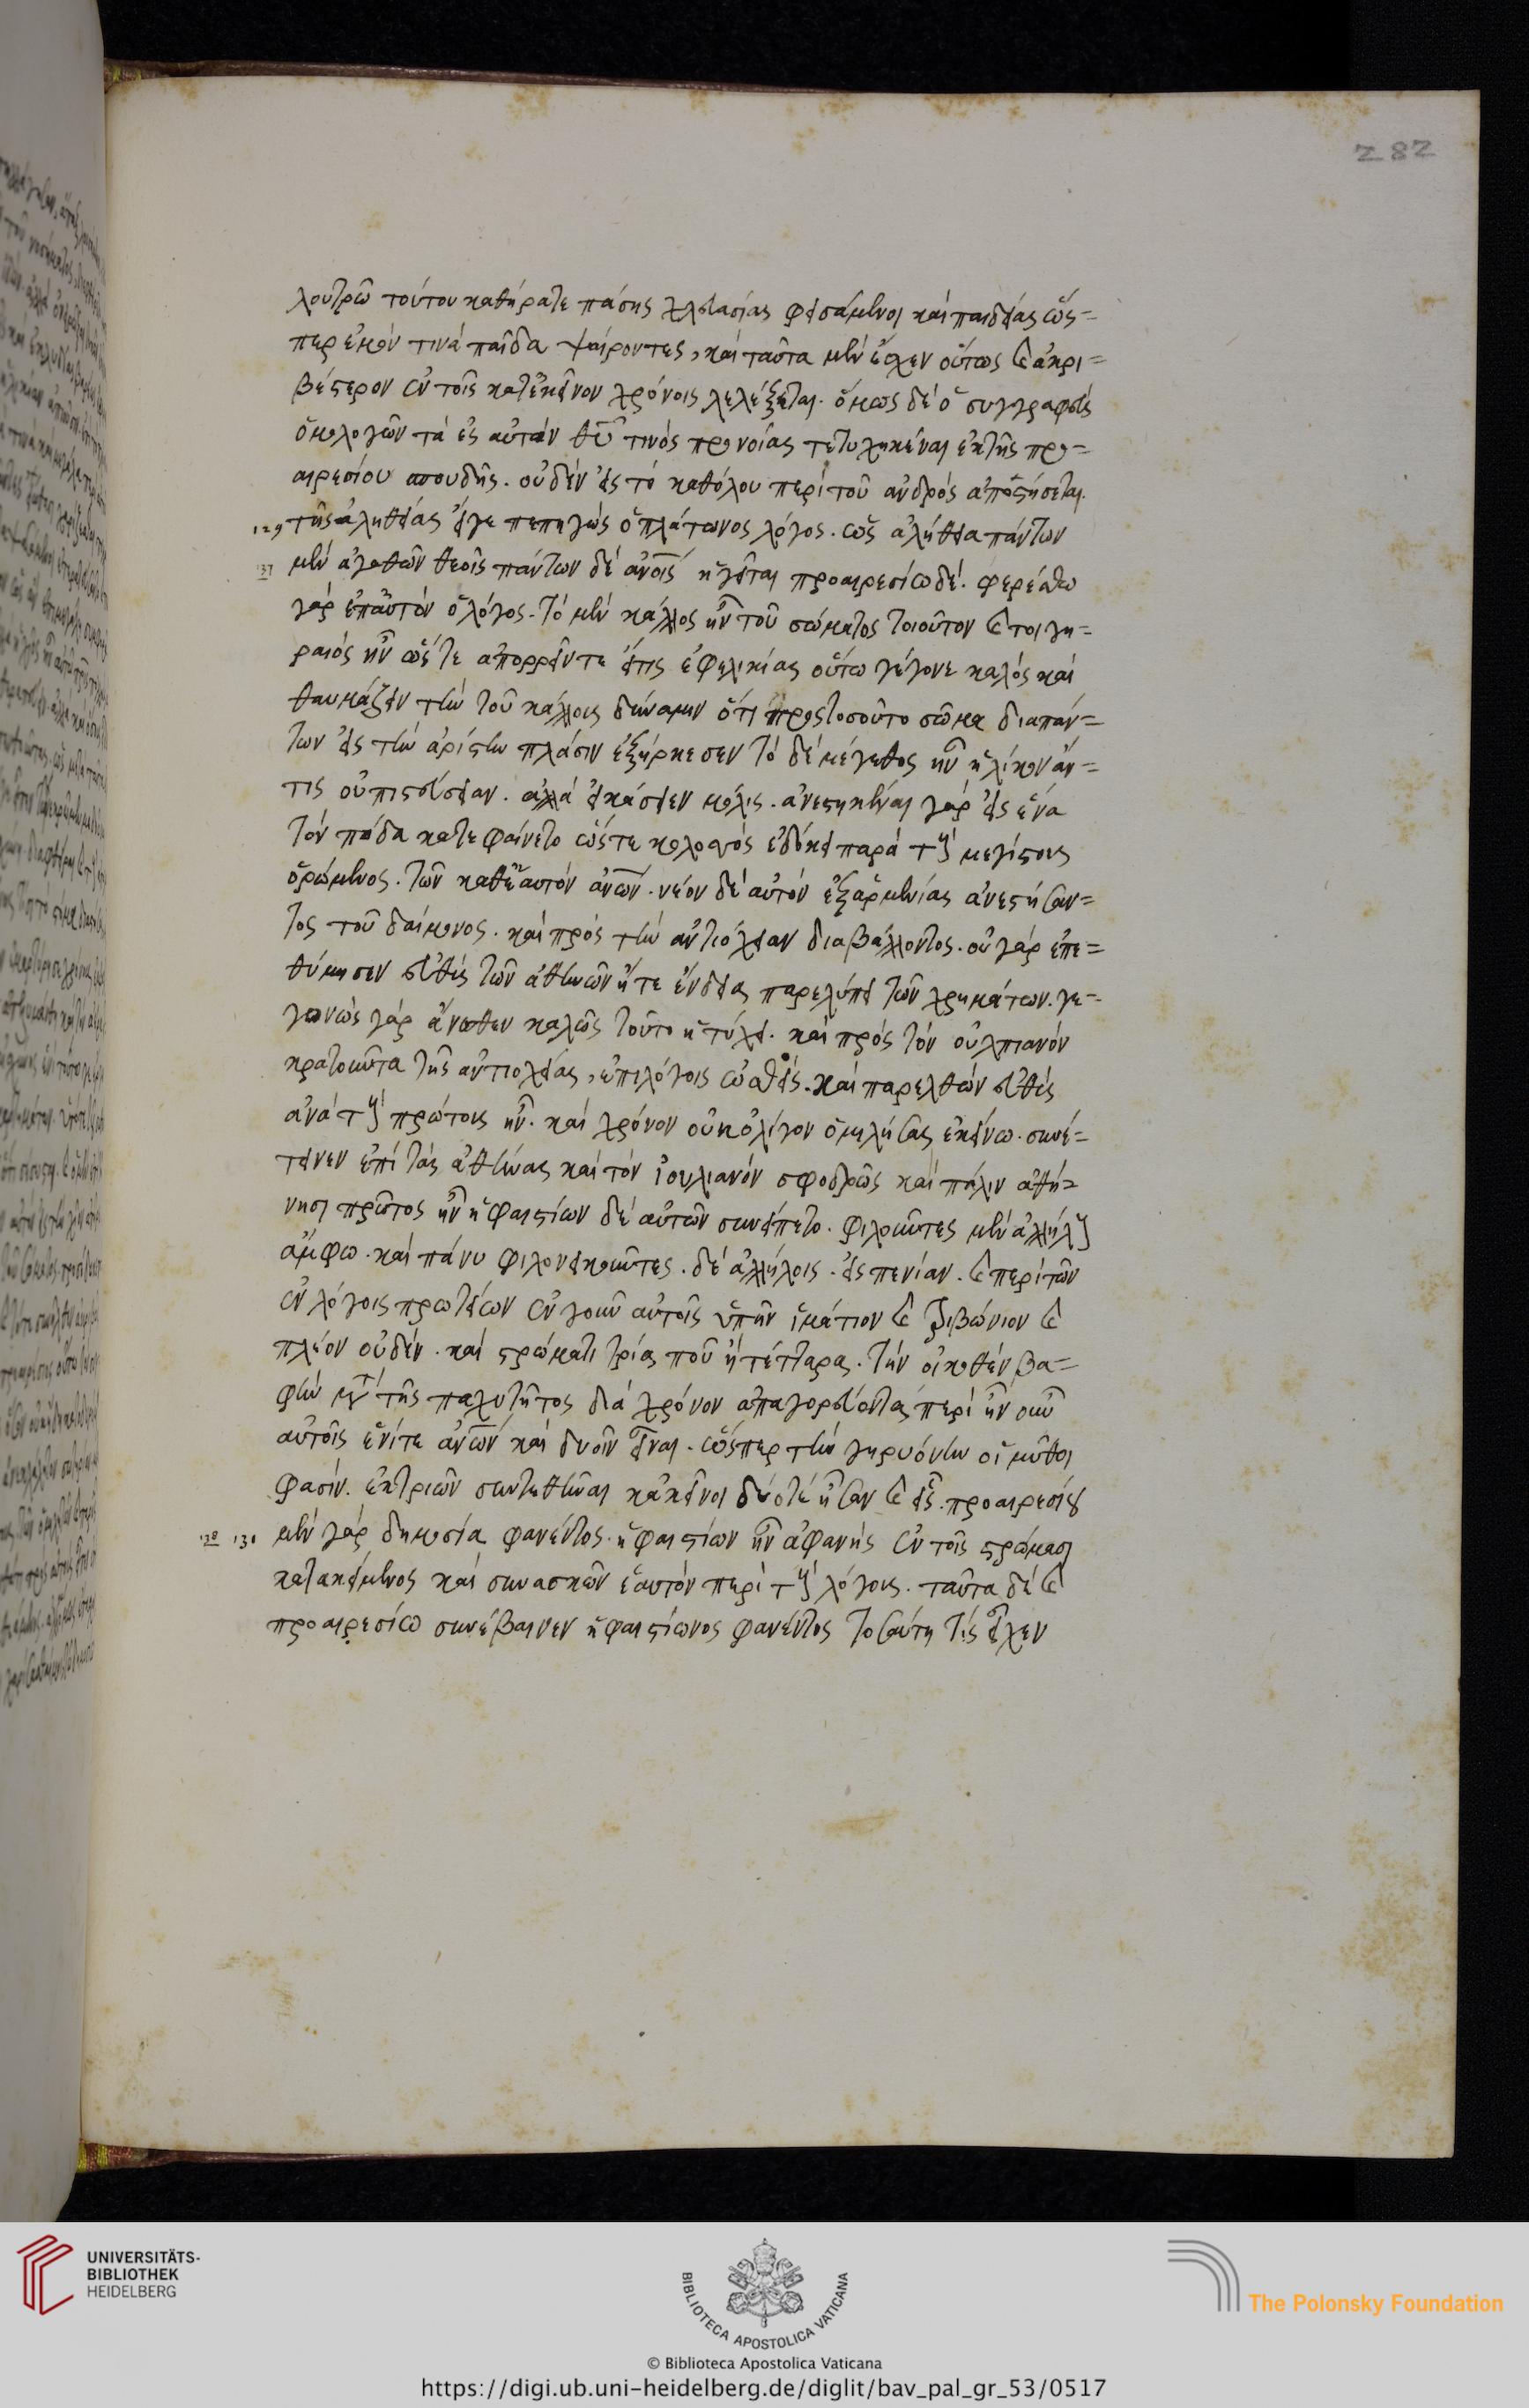 282
λουτρῶ τούτου καθήρατε πάσης χλευασίας φεισάμενοι καὶ παιδείας ὥς=
περ ἐμόν τινά παῖδα ψαίροντες, καὶ ταῦτα μὲν ἔσχεν οὕτως καὶ ἀκρι=
βέστερον ἐν τοῖς κατ' ἐκεῖνον χρόνοις λελέξεται. ὅμως δὲ ὁ συγγραφεὺς
ὁμολογῶν τὰ ἐς αὐτὰν θυ τινός προνοίας τετυχηκέναι ἐκ τῆς προ=
αιρεσίου σπουδῆς. οὐδὲν εἰς τὸ καθόλου περὶ τοῦ ἀνδρὸς ἀποστήσεται.
129 τῆς ἀληθείας εἴγε πεπηγὼς ὁ πλάτωνος λόγος. ὡς ἀλήθεια πάντων
137 μὲν ἀγαθῶν θεοῖς πάντων δὲ ἀνοις ἡγεῖται προαιρεσίω δέ. φερέσθω
γὰρ ἐπ' αὐτὸν ὁ λόγος. τὸ μὲν κάλλος ἦν τοῦ σώματος τοιοῦτον καίτοι γη=
ραιός ἦν ὥστε ἀπορρεῖν τε εἴ τις ἐφ' ἡλικίας οὕτω γέγονε καλὸς καὶ
θαυμάζειν τὴν τοῦ κάλλους δύναμιν ὅτι πρὸς τοσοῦτο σῶμα διαπάν=
των εἰς τὴν ἀρίστην πλάσιν ἐξήρκεσεν τὸ δὲ μέγεθος ἦν ἡλίκον ἄν=
τις οὐ πιστεύσειαν. ἀλλὰ εἰκάσειεν μόλις. ἀνεστηκέναι γὰρ εἰς ἕνα
τὸν πόδα κατεφαίνετο ὥστε κολοσός ἐδόκει παρὰ τοὺς μεγίστους
ὁρώμενος. τῶν καθ' ἑαυτὸν ἀνων. νέον δὲ αὐτὸν ἐξ ἀρμενίας ἀνεστήσαν=
τος τοῦ δαίμονος. καὶ πρὸς τὴν ἀντιόχειαν διαβάλλοντος. οὐ γὰρ ἐπε=
θύμησεν εὐθὺς τῶν ἀθηνῶν ἥτε ἔνδεια παρελύπει τῶν χρημάτων. γε=
γονὼς γὰρ ἄνωθεν καλῶς τοῦτο ἠτύχει. καὶ πρὸς τὸν οὐλπιανόν
κρατοῦντα τῆς ἀντιοχείας, ἐπὶ λόγοις ὠσθείς. καὶ παρελθὼν εὐθὺς
ἀνὰ τοὺς πρώτους ἦν. καὶ χρόνον οὐκ ὀλίγον ὁμιλήσας ἐκείνω. συνέ=
τεινεν ἐπὶ τὰς ἀθήνας καὶ τὸν ἰουλιανόν σφοδρῶς καὶ πάλιν ἀθή=
νησι πρῶτος ἦν ἡφαιστίων δὲ αὐτῶν συνείπετο. φιλοῦντες μὲν ἀλλήλους
ἄμφω. καὶ πάνυ φιλονεικοῦντες. δὲ ἀλλήλοις. εἰς πενίαν. καὶ περὶ τῶν
ἐν λόγοις πρωτείων ἐν γοῦν αὐτοῖς ὑπῆν ἱμάτιον καὶ τριβώνιον καὶ
πλέον οὐδέν. καὶ στρώματι τρία που ἢ τέτταρα. τὴν οἴκοθεν βα=
φὴν μετὰ τῆς παχυτῆτος διὰ χρόνον ἀπαγορεύοντα περὶ ἦν οὖν
αὐτοῖς ἕνίτε ἀνων καὶ δυοῖν εἶναι. ὥσπερ τὴν γηρυόνην οἱ μῦθοι
φασίν. ἐκ τριῶν συντεθῆναι κἀκεῖνοι δύο τε ἦσαν καὶ εἷς. προαιρεσίου
138 130 μὲν γὰρ δημοσία φανέντος. ἡφαιστίων ἦν ἀφανής ἐν τοῖς στρώμασι
κατακείμενος καὶ συνασκῶν ἑαυτὸν περὶ τοὺς λόγους. ταῦτα δὲ καὶ
προαιρεσίω συνέβαινεν ἡφαιστίωνος φανέντος τοσαύτη τις εἶχεν
UNIVERSITÄTS-
BIBLIOTHEK
HEIDELBERG
BIBLIOTECA APOSTOLICA VATICANA
The Polonsky Foundation
© Biblioteca Apostolica Vaticana
https://digi.ub.uni-heidelberg.de/diglit/bav_pal_gr_53/0517